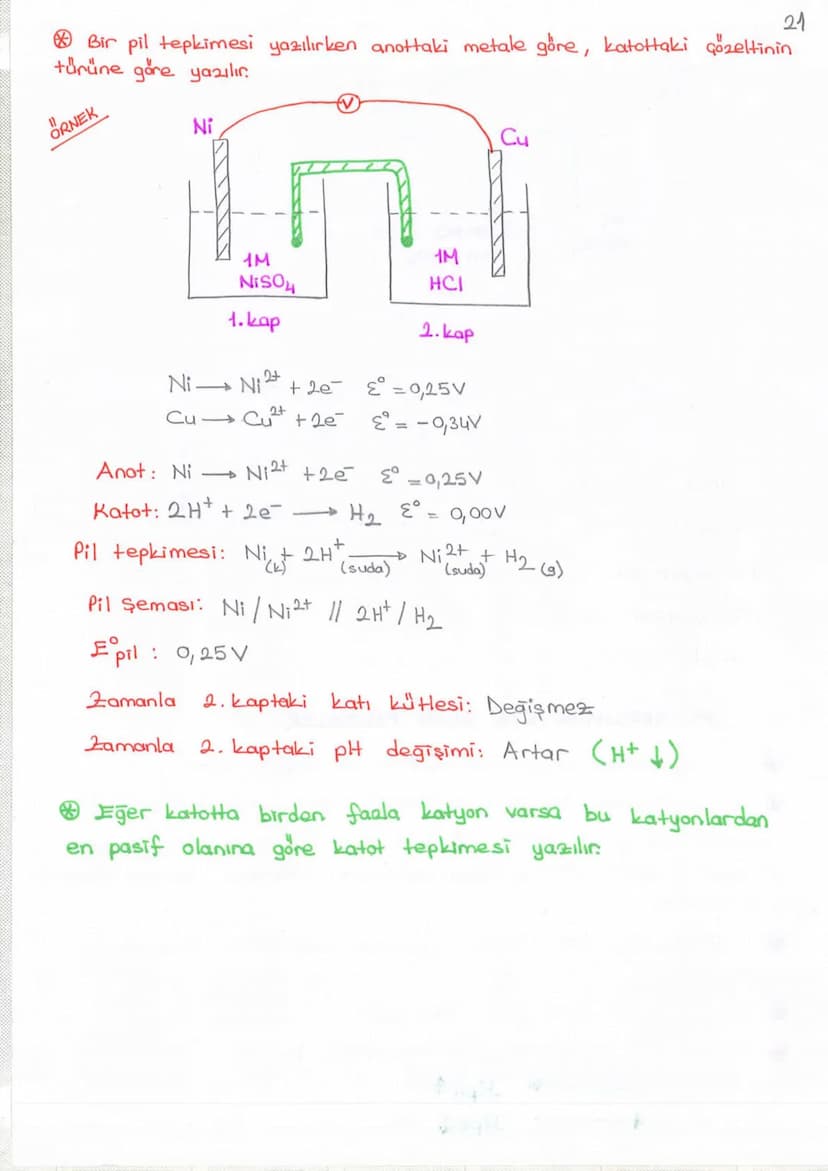 21
⊛ Bir pil tepkimesi yazılırken anottaki metale göre, katottaki çözeltinin
türüne göre yazılır.
ÖRNEK
V
Ni
Cu
1M
NiSO₄
1M
HCl
1.kap
2.kap
Ni → Ni²⁺ + 2e⁻ ε° = 0,25V
Cu → Cu²⁺ + 2e⁻ ε° = -0,34V
Anot: Ni → Ni²⁺ + 2e⁻ ε° = 0,25V
Katot: 2H⁺ + 2e⁻ → H₂ ε° = 0,00V
Pil tepkimesi: Ni(k) + 2H⁺(suda) → Ni²⁺(suda) + H₂(g)
Pil Şeması: Ni / Ni²⁺ // 2H⁺ / H₂
E°pil : 0,25V
Zamanla 2. kaptaki katı kütlesi: Değişmez
Zamanla 2. kaptaki pH değişimi: Artar (H⁺ ↓)
⊛ Eğer katotta birden fazla katyon varsa bu katyonlardan
en pasif olanına göre katot tepkimesi yazılır.